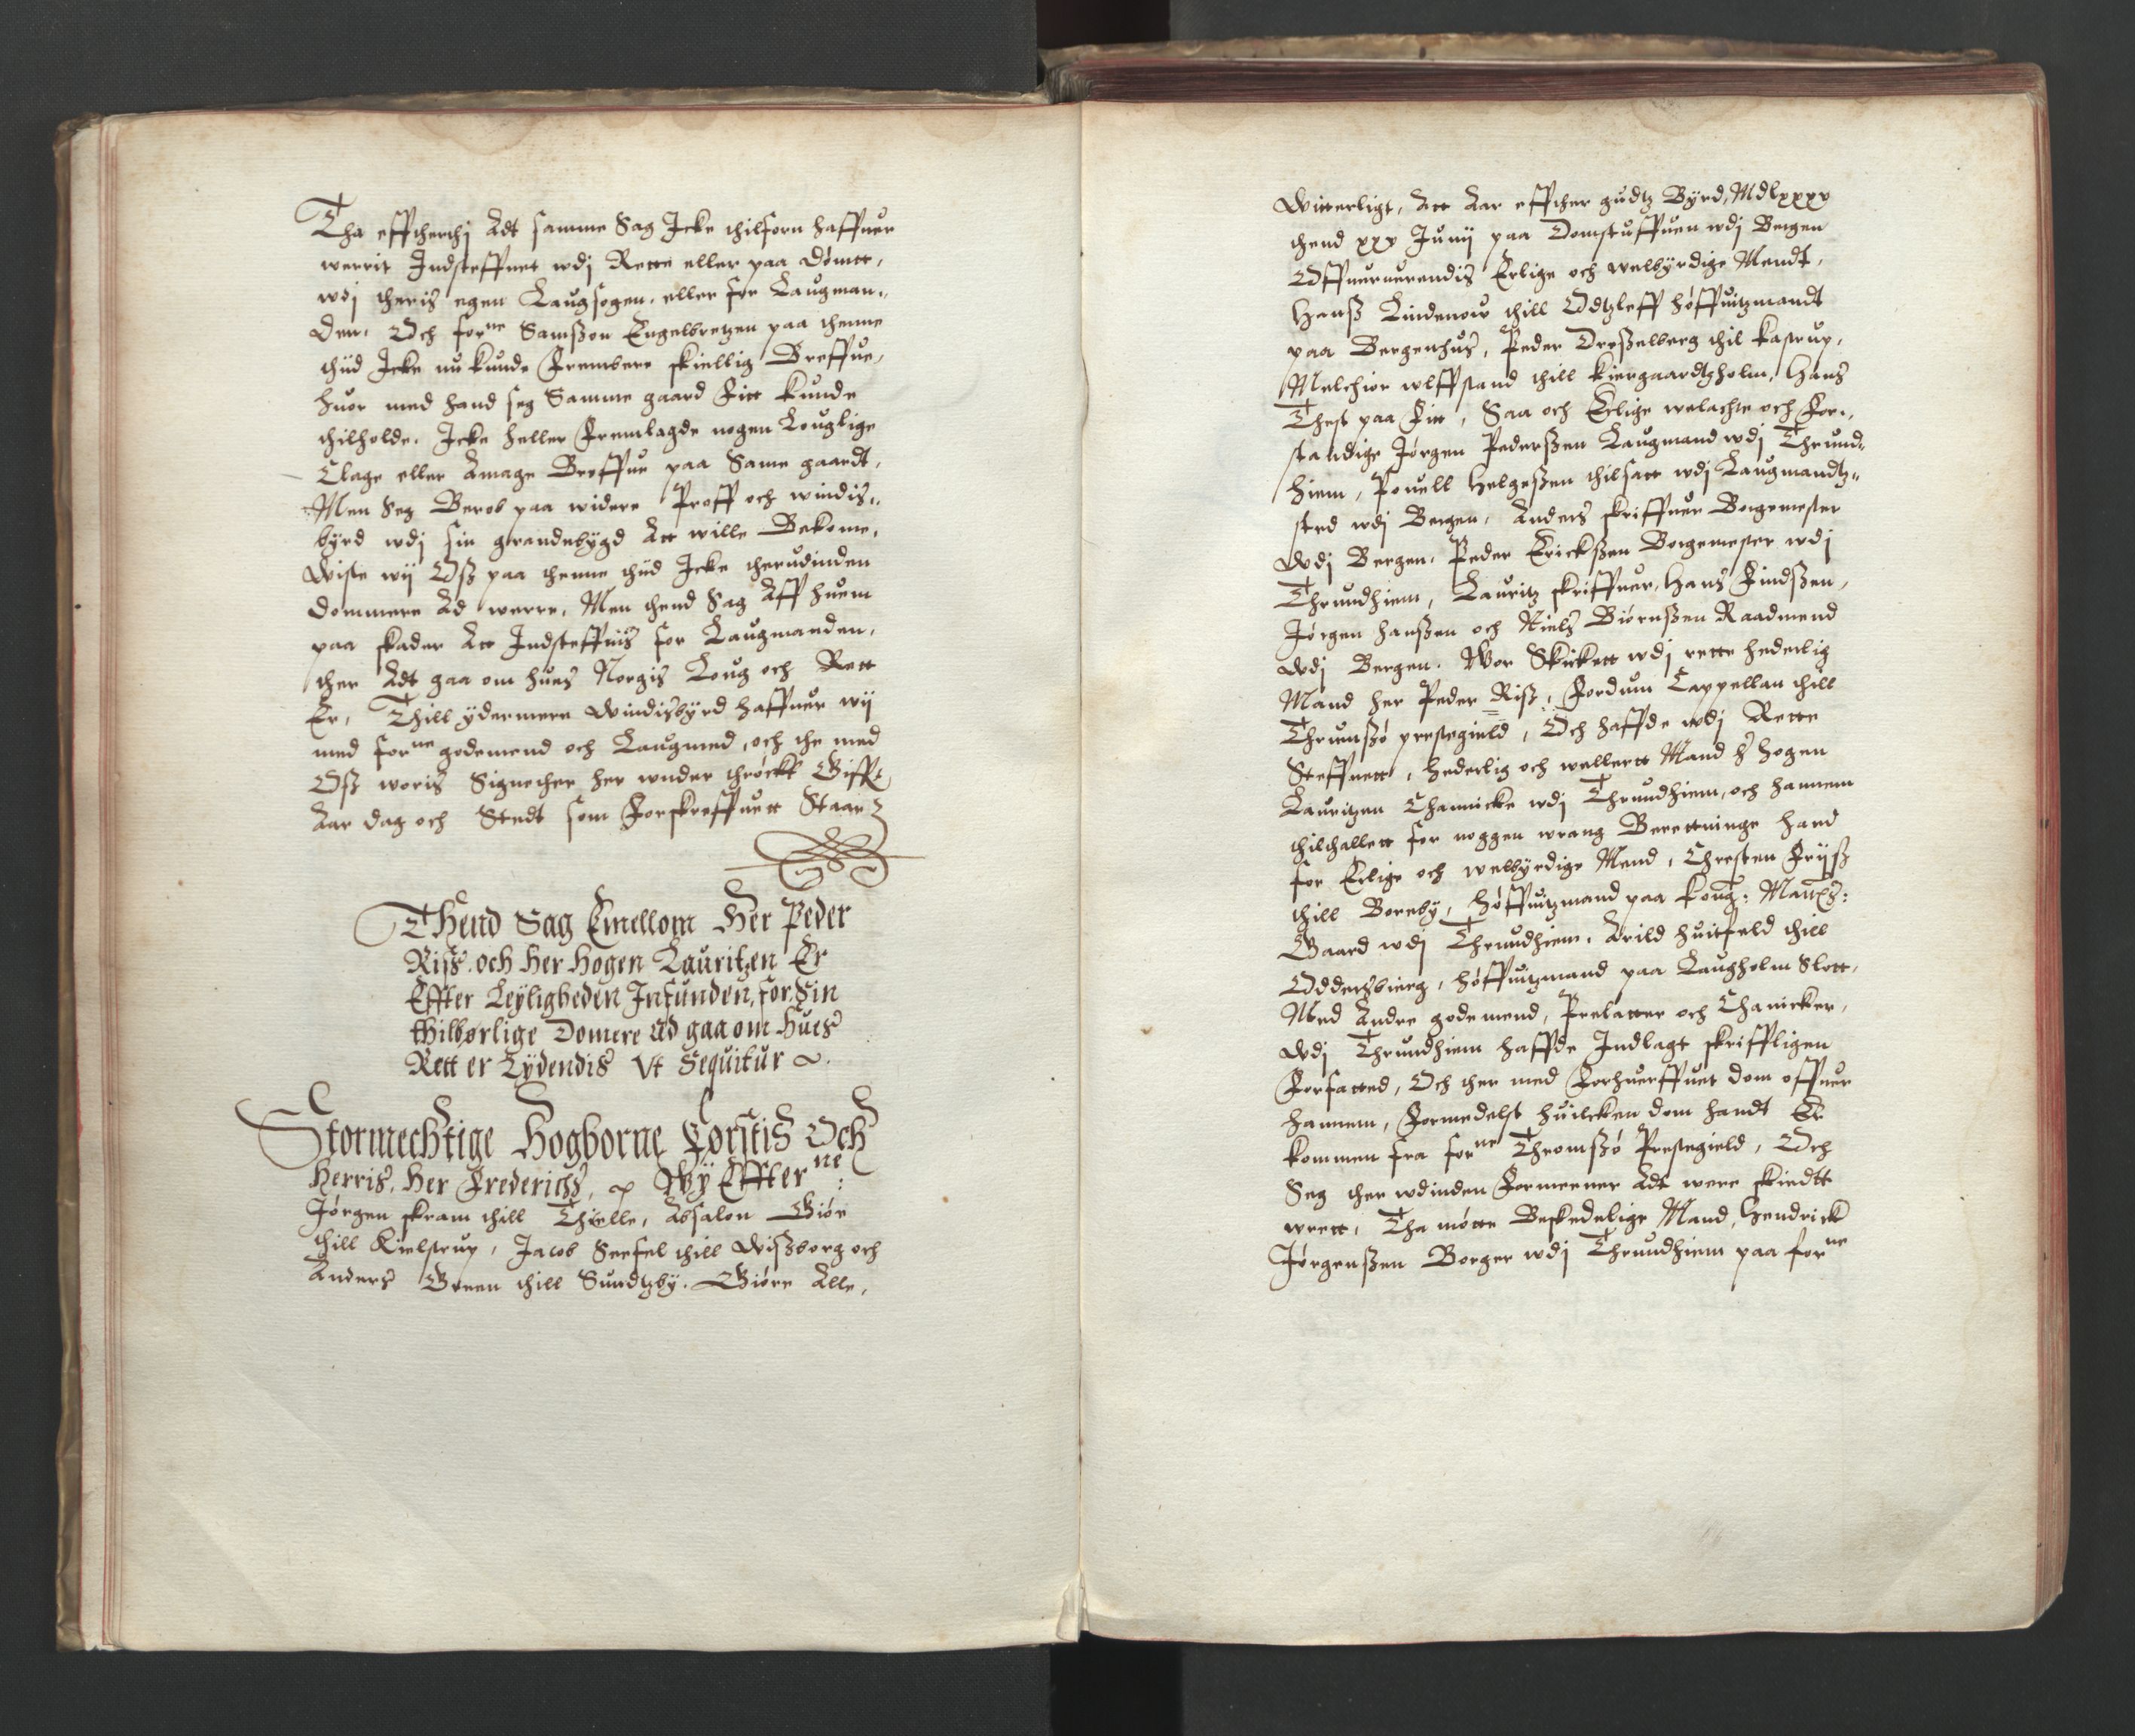 Tha effthertj Adt samme Sag Icke thilforn haffuer
werrit Indsteffnet wdj Rette eller paa dømtt,
wdj theris egen Laugsogen, eller for Laugman„
den. Och for<sup>ne</sup> Samßon Engelbretzen paa thenne
thiid Icke nu kunde Frembere skiellig Breffue,
huor med hand seg Samme gaard Fitt kunde
thilholde. Icke heller Fremlagde nogen Louglige
Clage eller Amage Breffue paa Same gaardt,
Men Seg Berob paa widere Proff och windis„
byrd wdj sin grandebygd Att wille Bekome,
Wiste wij Oß paa thenne thiid Icke therudinden
dommere Ad werre, Men thend Sag Aff huem
paa skader Att Indsteffnis for Laugmanden,
ther Adt gaa om hues Norgis Loug och Rett
Er, Thill ydermere Windisbyrd haffuer wij
med for<sup>ne</sup> godemend och Laugmed, och the med
Oß woris Signether her wnder thrøckt Gifft
Aar dag och Stedt som Forskreffuett Staar
THend Sag Emellom Her Peder
Riss. och Her Hogen Lauritzen Er
Effter Leyligheden Infunden, for Sin
thilbørlige Domere ad gaa om Hues
Rett er Lydendis Vt Sequitur
Stormechtige Hogborne Førstis Och
Herris, Her Frederichs, Wy Effter<sup>ne</sup>:
Jørgen skram thill Thielle, Absalon Giøe
thill Kielstrup, Jacob Seefel thill Wißborg och
Anders Green thill Sundtzby. Giøre Alle,
Witterligt, Att Aar effther gudtz Byrd, Mdlxxxv
thend xxx Junij paa Domstuffuen wdj Bergen
Offuerwerendis Erlige och welbyrdige Mendt,
Hanß Lindenow thill Odtzleff høffuitzmandt
paa Bergenhus, Peder Dreßelberg thil kastrup,
Melchior wlffstand thill kiergaardtzholm, Hans
Thest paa Fitt, Saa och Erlige welachte och For„
standige Jørgen Pederßen Laugmand wdj Thrund„
hiem, Pouell Helgeßen thilsatt wdj Laugmandtz„
sted wdj Bergen, Anders skriffuer Borgemester
Wdj Bergen, Peder Erickßen Borgemester wdj
Thrundhiem, Lauritz skriffuer, Hans Findßen,
Jørgen Hanßen och Niels Biørnßen Raadmend
Wdj Bergen. Wor Skickett wdj rette hederlig
Mand her Peder Riß, Fordum Cappellan thill
Thrumßø prestegield, Och haffde wdj Rette
Steffnett, hederlig och wellertt Mand H: Hogen
Lauritzen Channicke wdj Thrundhiem, och hannem
thilthallett for noggen wrang Berettninge hand
for Erlige och welbyrdige Mend, Chresten Friiß
thill Borrby, høffuitzmand paa kong: Mattz:
Gaard wdj Thrundhiem. Arild huitfeld thill
Oddersbierg, høffuitzmand paa Laugholm Slott,
Med Andre godemend, Prelatter och Chanicker,
Wdj Thrundhiem haffde Indlagt skriffligen
Forfatted, Och ther med Forhuerffuet dom offuer
hannem, Formedelst huilcken dom handt Er
kommen fra for<sup>ne</sup> Thromßø Prestegield, Och
Seg ther wdinden Formeener Adt were skiedtt
wrett, Tha møtte Beskedelige Mand, Hendrick
Jørgenßen Borger wdj Thrundhiem paa for<sup>ne</sup>